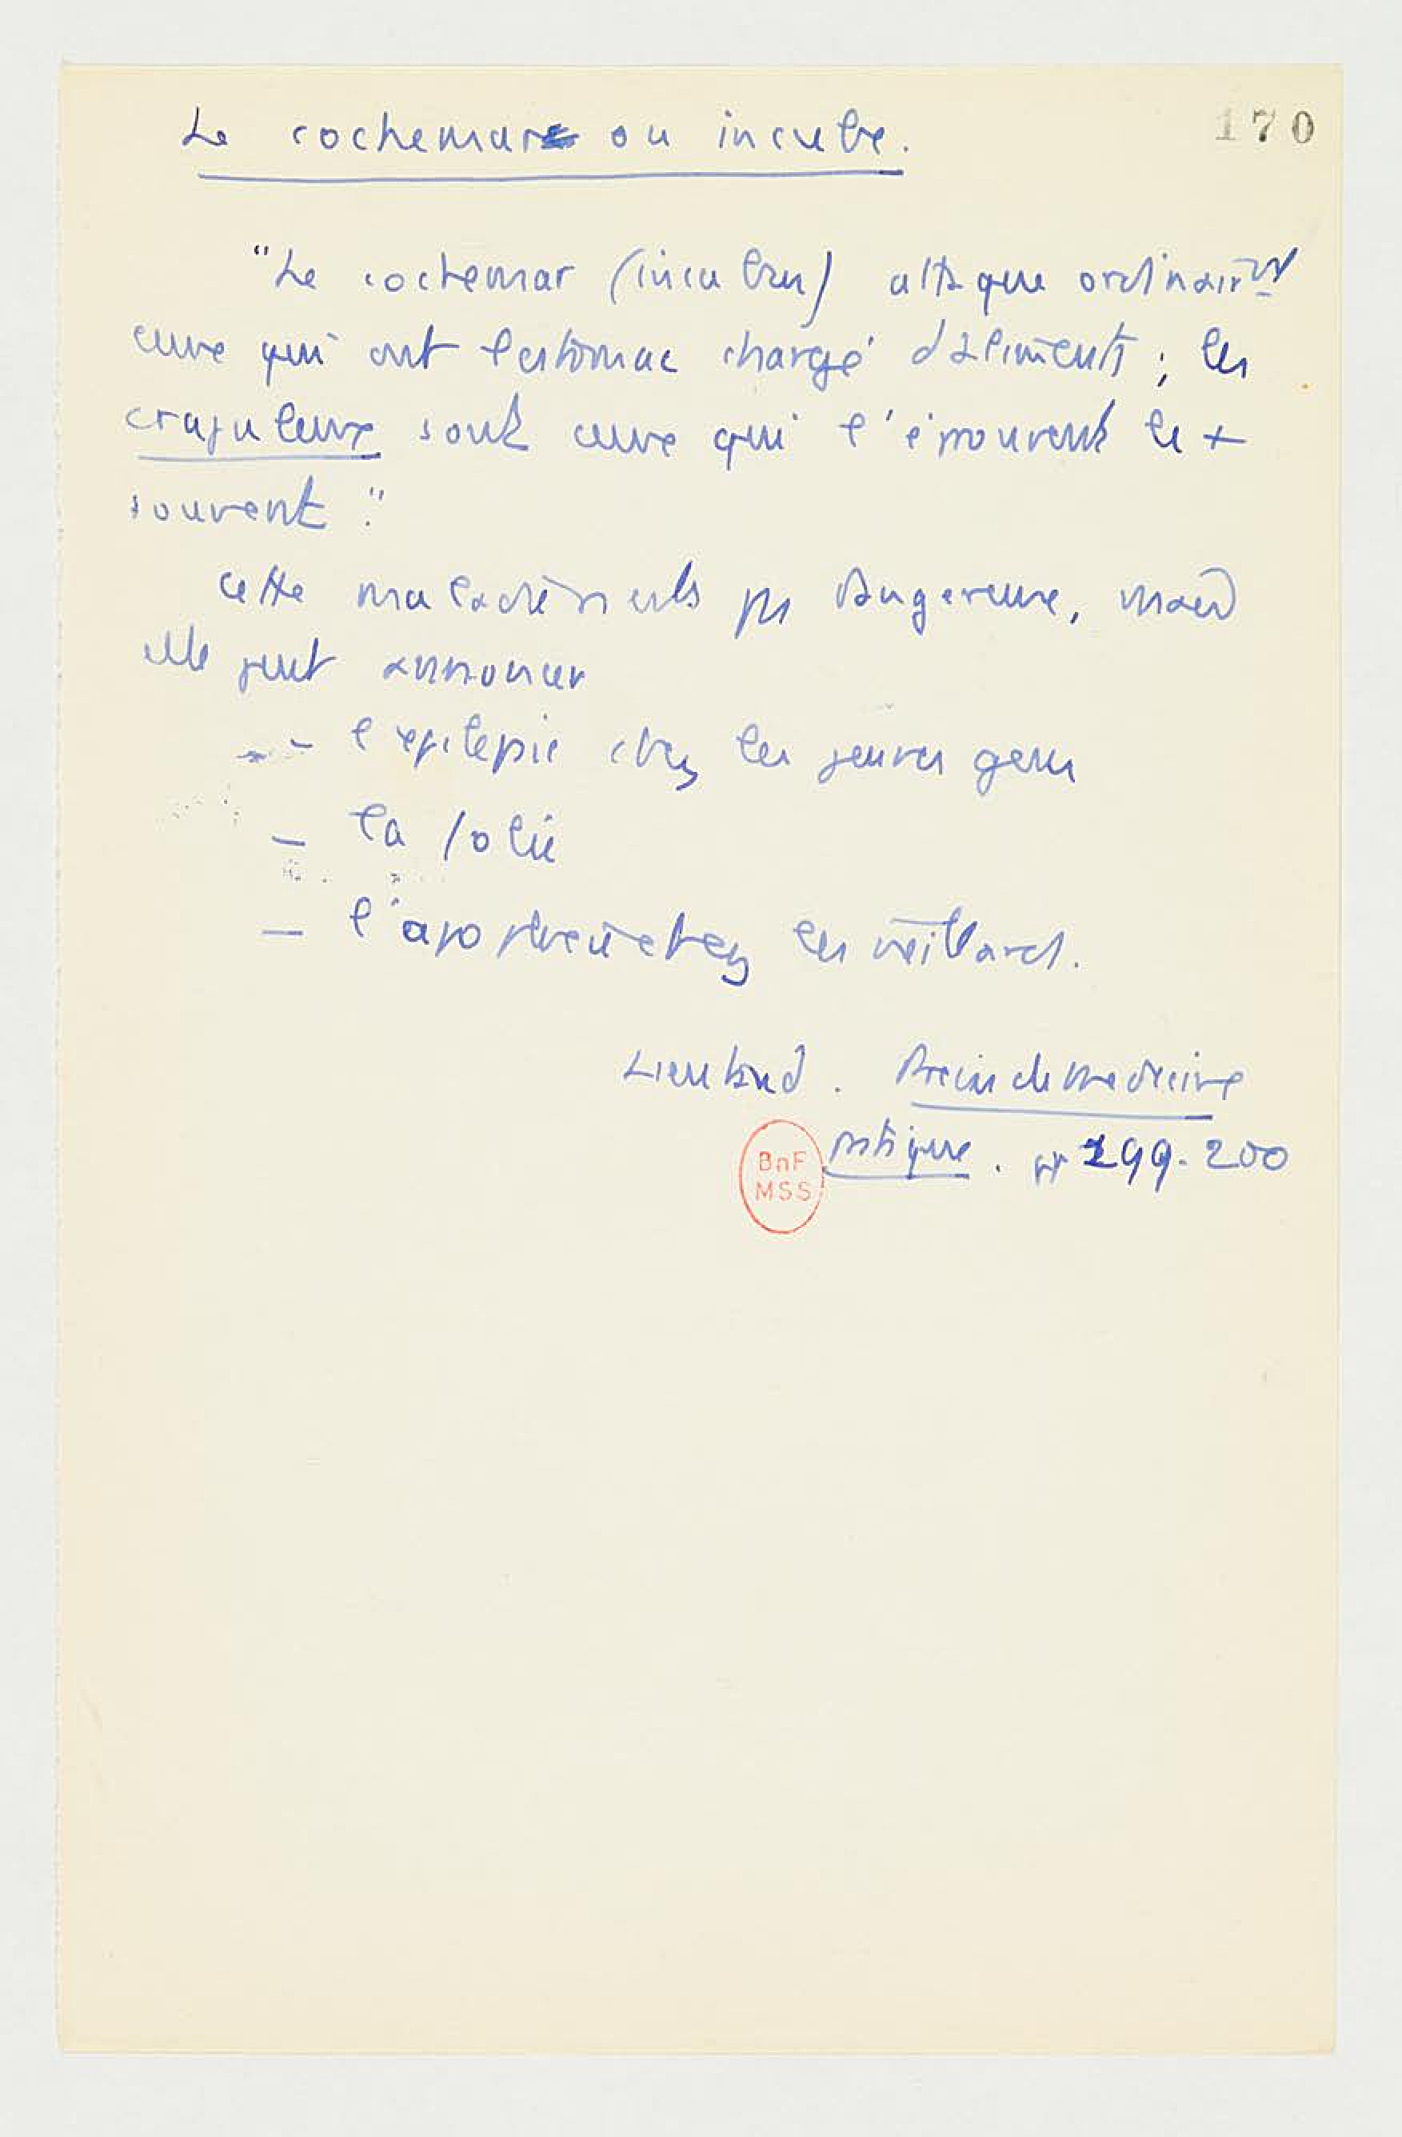 Le cochemar ou incube.
170
"Le cochemar (incubus) attaque ordinairt
ceux qui ont l'estomac chargé d'aliments ; les
crapuleux sont ceux qui l'éprouvent le +
souvent."
Cette maladie n'est pas dangereuse, mais
elle peut annoncer
- l'epilepsie chez les jeunes gens
- la folie
- l'apoplexie chez les vieillards.
Lieutaud. Précis de medecine
pratique. pp 199-200
BnF
MSS